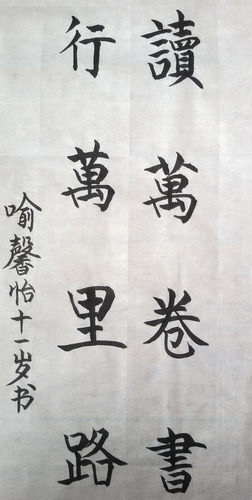 讀萬卷書
行萬里路
喻馨怡十一岁书